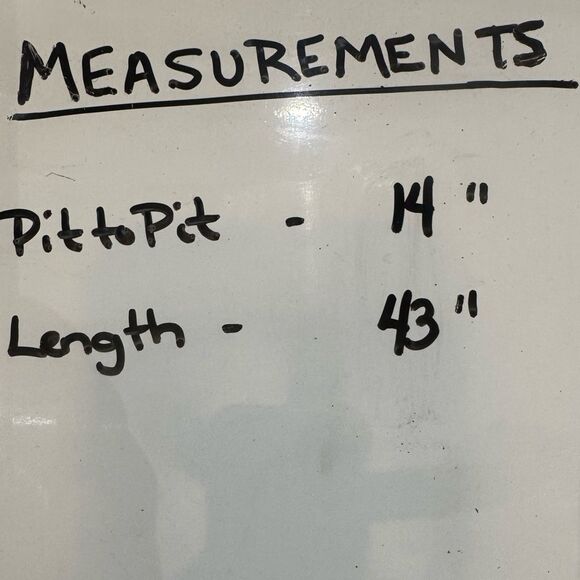 MEASUREMENTS
Pit to Pit - 14"
Length - 43"